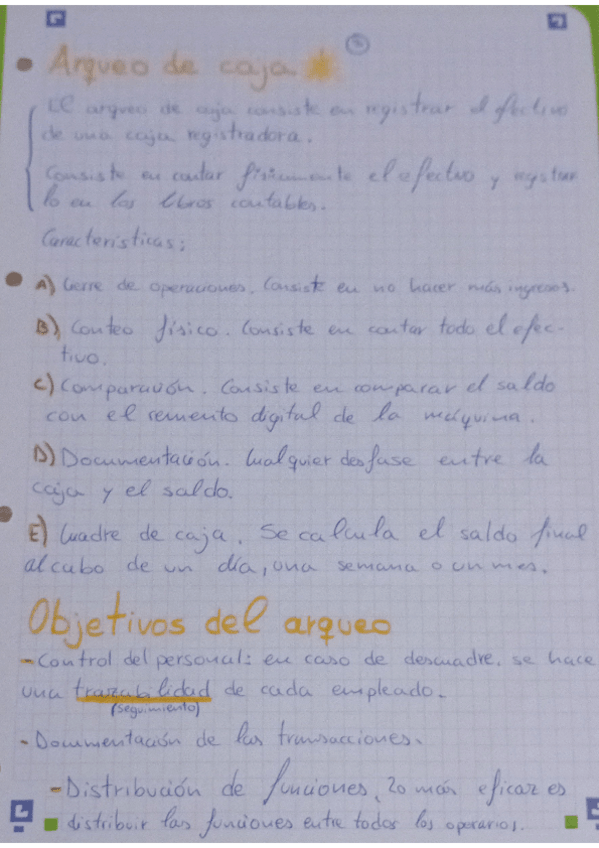 Arqueo de caja
El arqueo de caja consiste en registrar el efectivo
de una caja registradora.
Consiste en contar físicamente el efectivo y registrar
lo en los libros contables.
Características:
A) Cierre de operaciones. Consiste en no hacer más ingresos.
B) Conteo físico. Consiste en contar todo el efec-
tivo.
C) Comparación. Consiste en comparar el saldo
con el remento digital de la máquina.
D) Documentación. Cualquier desfase entre la
caja y el saldo.
E) Cuadre de caja. Se calcula el saldo final
al cabo de un día, una semana o un mes.
Objetivos del arqueo
- Control del personal: en caso de descuadre, se hace
una trazabilidad de cada empleado.
(Seguimiento)
- Documentación de las transacciones.
- Distribución de funciones, lo más eficaz es
distribuir las funciones entre todos los operarios.